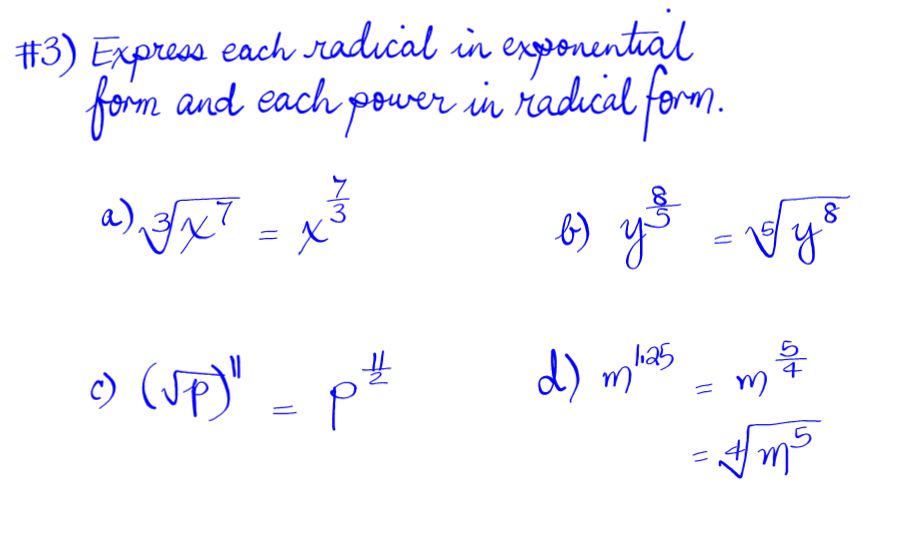 #3) Express each radical in exponential
form and each power in radical form.
a) ∛x⁷ = x^(7/3)
b) y^(8/5) = ⁵√y⁸
c) (√p)¹¹ = p^(11/2)
d) m^1.25 = m^(5/4)
= ∜m⁵